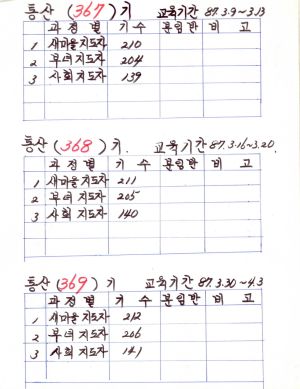 통산 (367) 기 교육기간 87.3.9~3.13
과정별 기수 분임반 비고
1 새마을지도자 210
2 부녀지도자 204
3 사회지도자 139
통산 (368) 기. 교육기간 87.3.16~3.20.
과정별 기수 분임반 비고
1 새마을지도자 211
2 부녀지도자 205
3 사회지도자 140
통산 (369) 기 교육기간 87.3.30~4.3
과정별 기수 분임반 비고
1 새마을지도자 212
2 부녀지도자 206
3 사회지도자 141